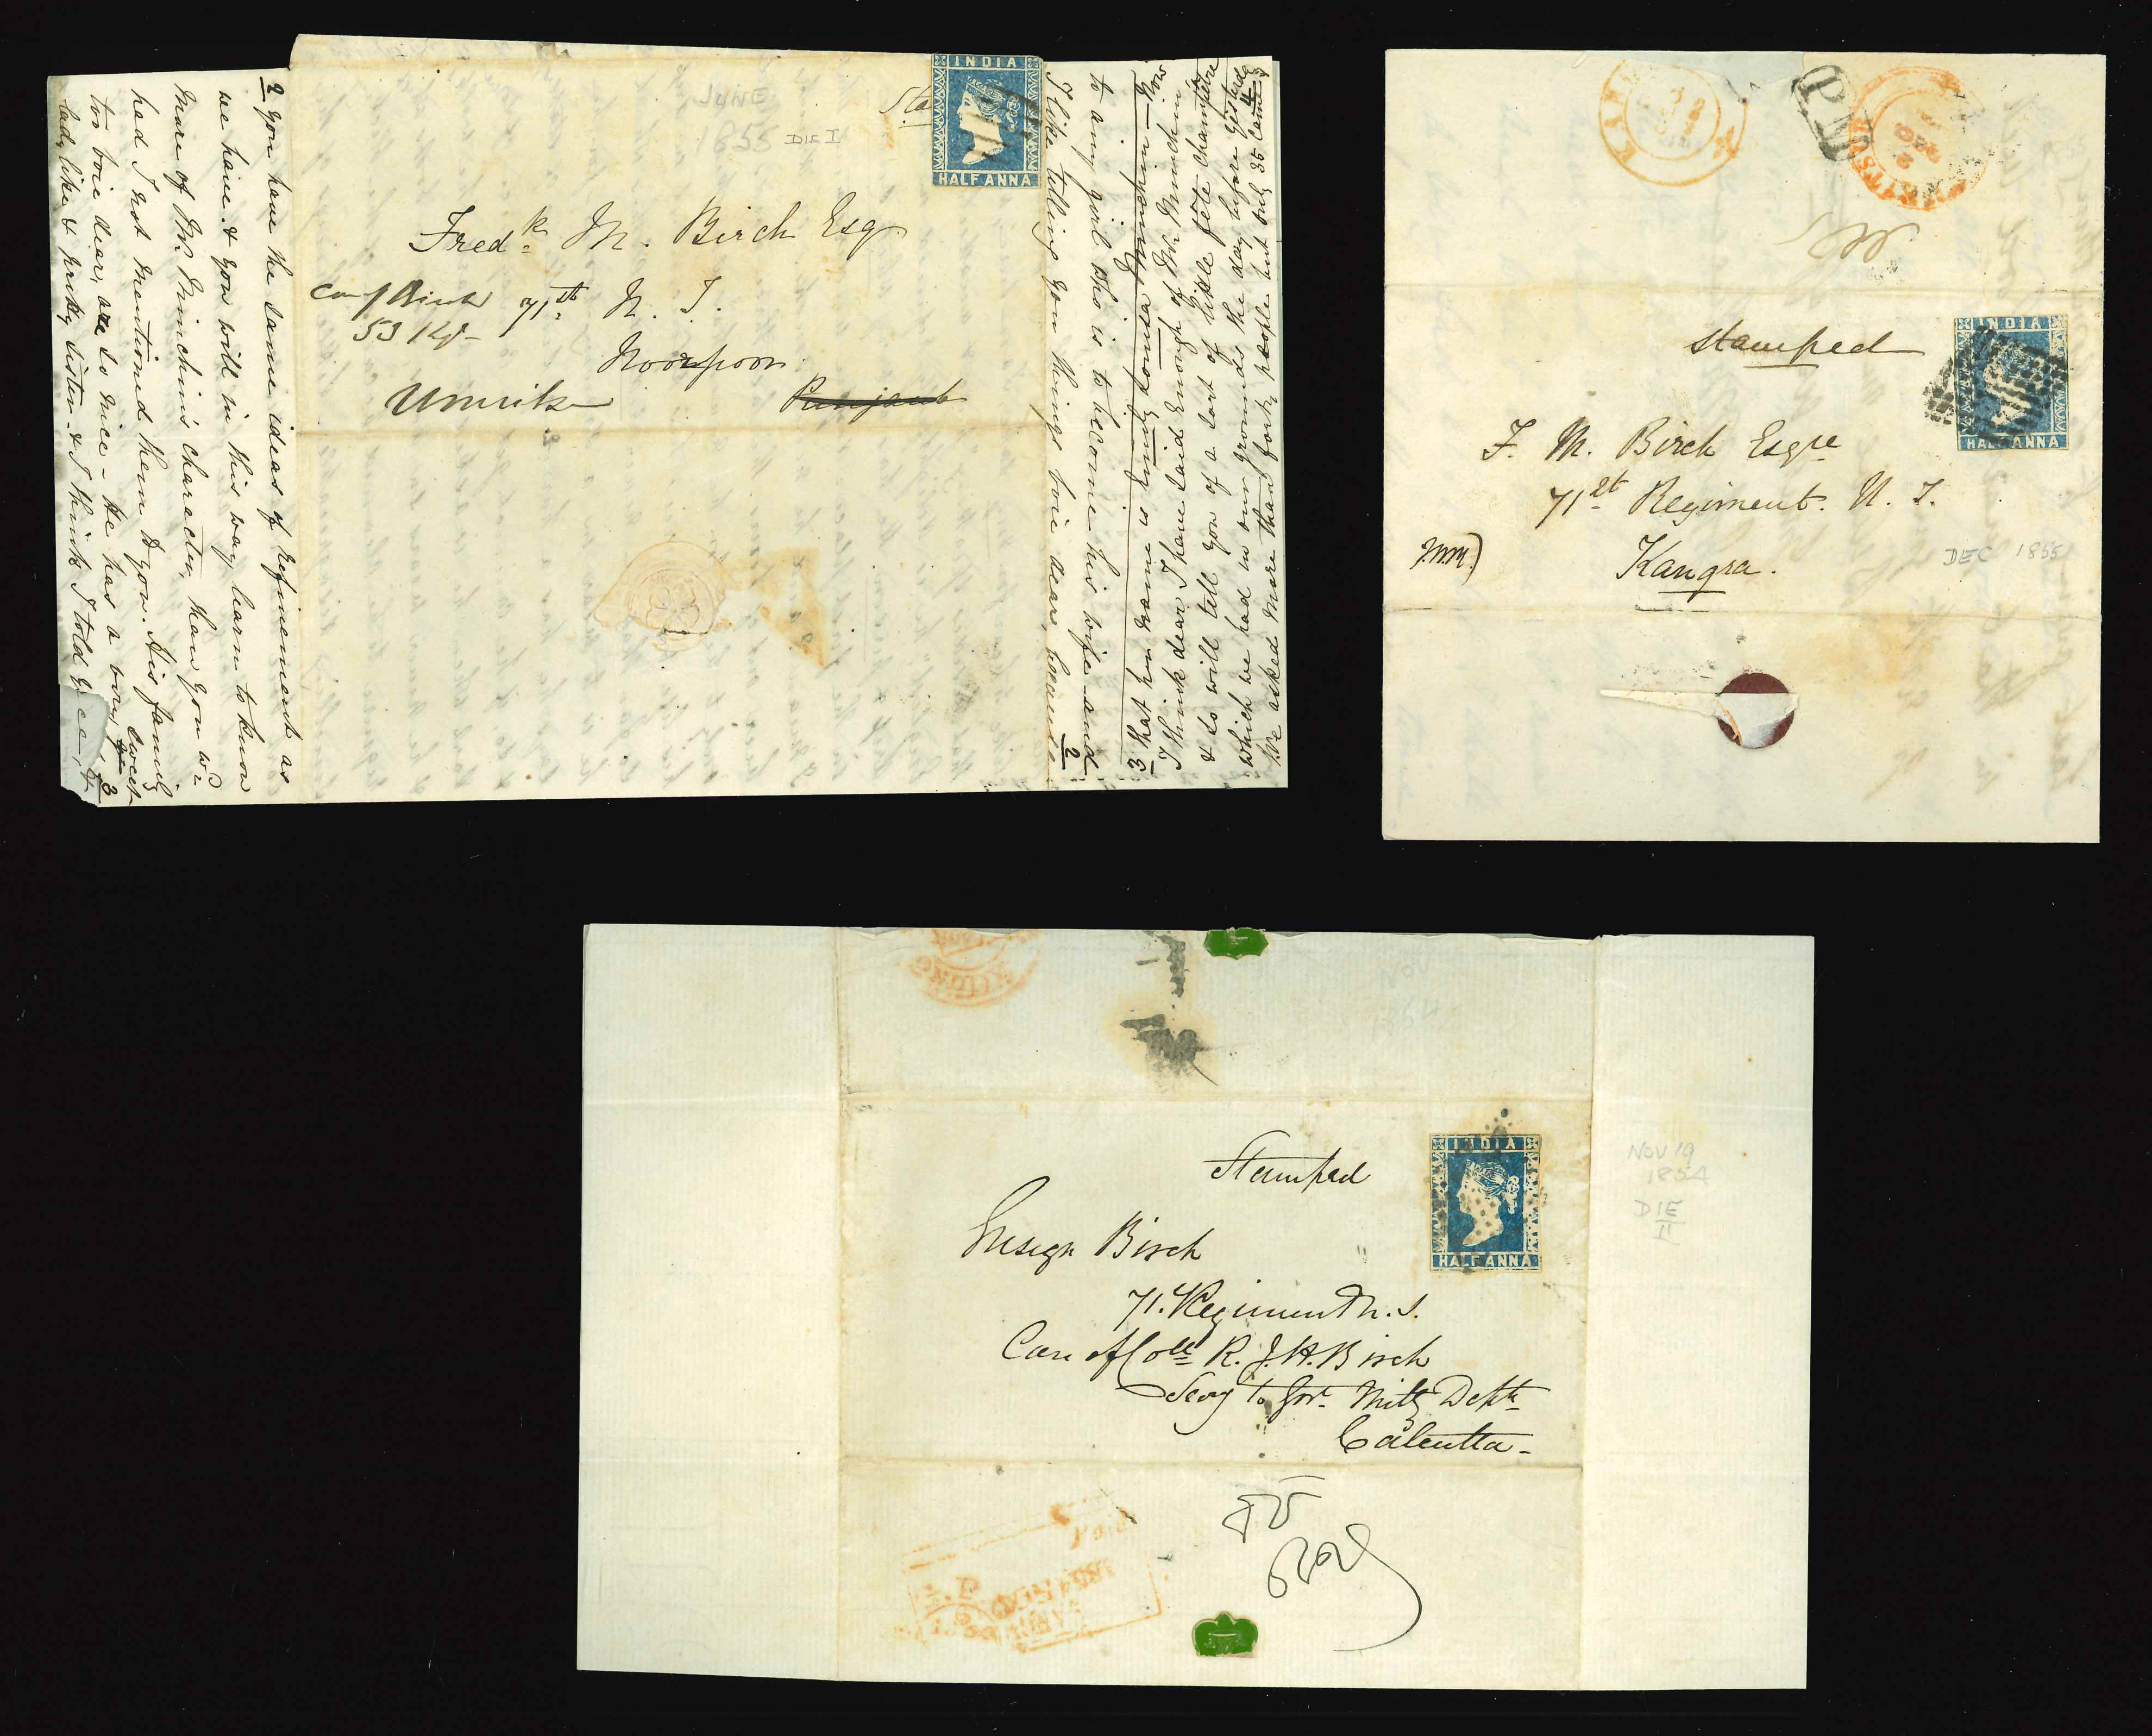 2 you have the same ideas of refinement as
we have. & you will in this way learn to know
more of Mr. Minchin's character, than you wd
had I not mentioned them to you. His family
too voie dear, are so nice - He has a very sweet
lady like & pretty sister - & I think I told
3
JUNE
1855 DIE I
Sta
INDIA
HALF ANNA
Fredk. M. Birch Esq
71st N. I.
53
Noorpoor
Umritsr
Punjaub
I like telling you things voie dear,
2
to any girl who is to become his wife and
3 that her name is
I think dear I have said Enough of Mr. Minchin
& so will tell you of a sort of little fête champêtre
which we had in our grounds the day before yesterday
We asked more than forty people but only 35 came
4
P.M
stamped
INDIA
HALF ANNA
F. M. Birch Esqre
71st Regiment. N. I.
Kangra.
DEC 1855
NOV
1854
Stamped
INDIA
HALF ANNA
NOV 19
1854
DIE
II
Ensign Birch
71. Regiment N. I.
Care of Coll R. J. H. Birch
Secy to Govt. Mility Deptt
Calcutta -